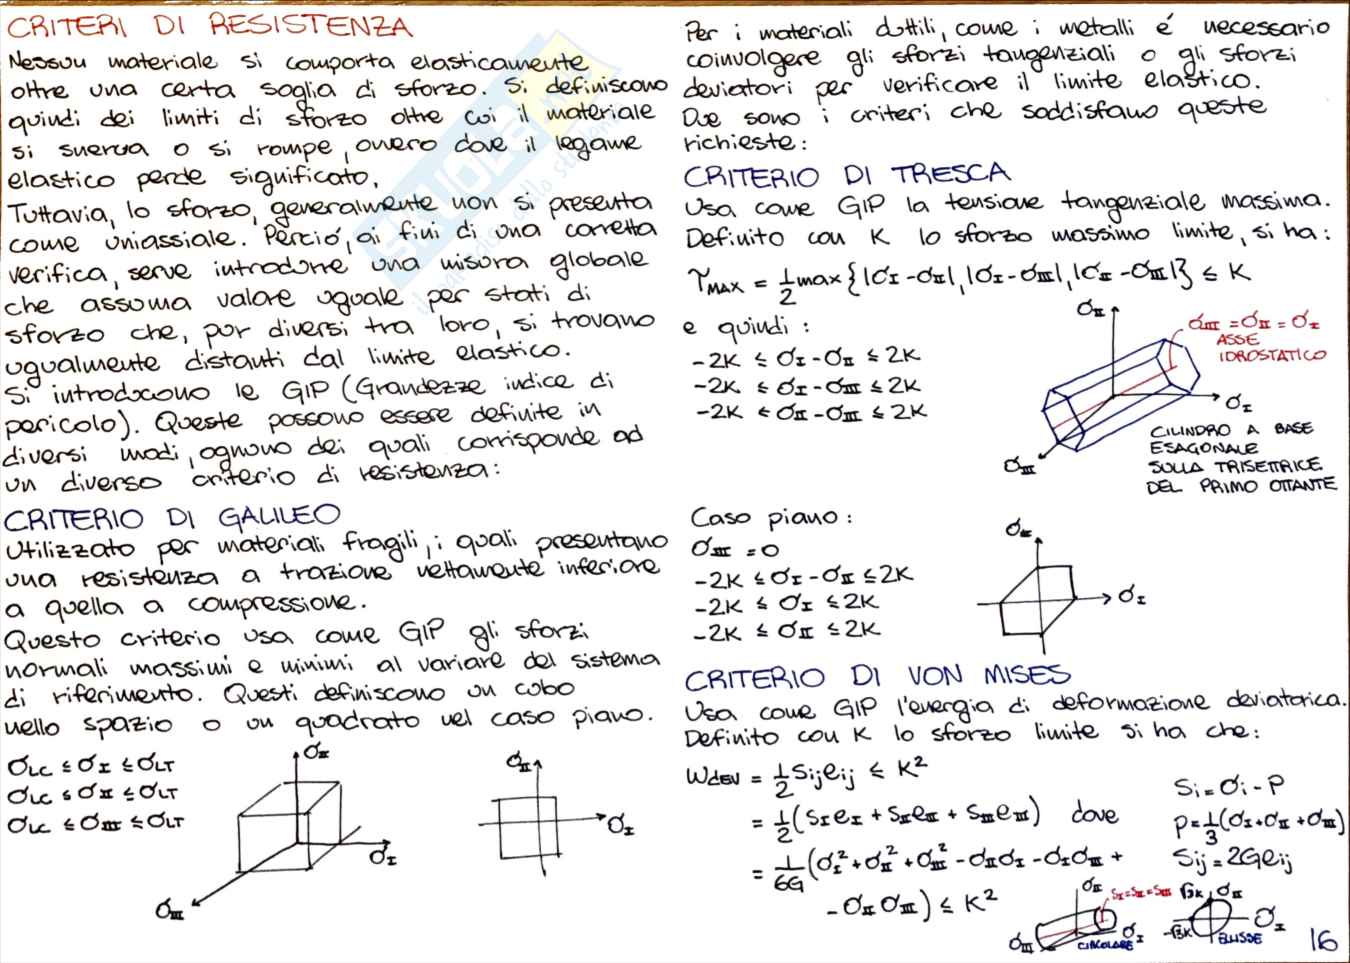 CRITERI DI RESISTENZA
Nessun materiale si comporta elasticamente
oltre una certa soglia di sforzo. Si definiscono
quindi dei limiti di sforzo oltre cui il materiale
si snerva o si rompe, ovvero dove il legame
elastico perde significato.
Tuttavia, lo sforzo, generalmente non si presenta
come uniassiale. Perciò, ai fini di una corretta
verifica, serve introdurre una misura globale
che assuma valore uguale per stati di
sforzo che, pur diversi tra loro, si trovano
ugualmente distanti dal limite elastico.
Si introducono le GIP (Grandezze indice di
pericolo). Queste possono essere definite in
diversi modi, ognuno dei quali corrisponde ad
un diverso criterio di resistenza:
CRITERIO DI GALILEO
Utilizzato per materiali fragili, i quali presentano
una resistenza a trazione nettamente inferiore
a quella a compressione.
Questo criterio usa come GIP gli sforzi
normali massimi e minimi al variare del sistema
di riferimento. Questi definiscono un cubo
nello spazio o un quadrato nel caso piano.
σLC ≤ σI ≤ σLT
σLC ≤ σII ≤ σLT
σLC ≤ σIII ≤ σLT
σII
σI
σIII
σII
σI
Per i materiali duttili, come i metalli é necessario
coinvolgere gli sforzi tangenziali o gli sforzi
deviatori per verificare il limite elastico.
Due sono i criteri che soddisfano queste
richieste:
CRITERIO DI TRESCA
Usa come GIP la tensione tangenziale massima.
Definito con K lo sforzo massimo limite, si ha:
τMAX = 1/2 max{|σI - σII|, |σI - σIII|, |σII - σIII|} ≤ K
e quindi:
-2K ≤ σI - σII ≤ 2K
-2K ≤ σI - σIII ≤ 2K
-2K ≤ σII - σIII ≤ 2K
σII
σIII = σII = σI
ASSE
IDROSTATICO
σI
σIII
CILINDRO A BASE
ESAGONALE
SULLA TRISETTRICE
DEL PRIMO OTTANTE
Caso piano:
σIII = 0
-2K ≤ σI - σII ≤ 2K
-2K ≤ σI ≤ 2K
-2K ≤ σII ≤ 2K
σII
σI
CRITERIO DI VON MISES
Usa come GIP l'energia di deformazione deviatorica.
Definito con K lo sforzo limite si ha che:
WdEV = 1/2 Sij eij ≤ K²
= 1/2 (SI eI + SII eII + SIII eIII) dove
= 1/6G (σI² + σII² + σIII² - σII σI - σI σIII +
- σII σIII) ≤ K²
Si = σi - P
P = 1/3 (σI + σII + σIII)
Sij = 2G eij
σII
SI = SII = SIII
σI
σIII
CIRCOLARE
√3K
σII
σI
-√3K
ELLISSE
16